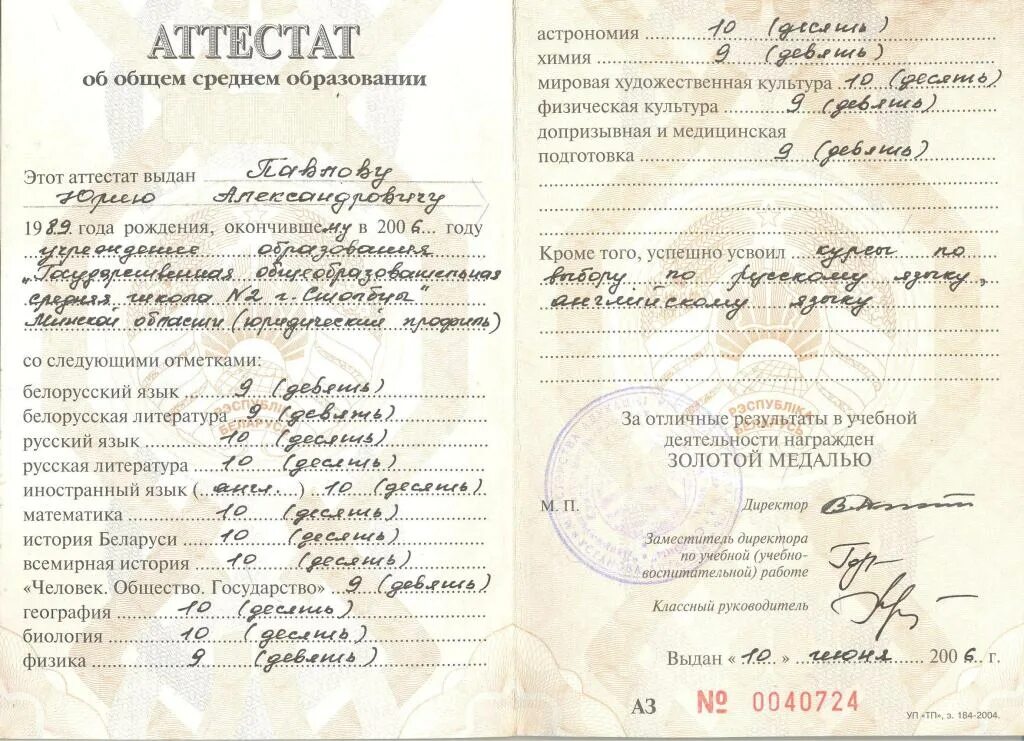 АТТЕСТАТ
об общем среднем образовании
Этот аттестат выдан Павлову
Юрию Александровичу
1989. года рождения, окончившему в 2006... году
учреждение образования
„Государственная общеобразовательная
средняя школа №2 г. Столбцы"
Минской области (юридический профиль)
со следующими отметками:
белорусский язык 9 (девять)
белорусская литература 9 (девять)
русский язык 10 (десять)
русская литература 10 (десять)
иностранный язык (англ.) 10 (десять)
математика 10 (десять)
история Беларуси 10 (десять)
всемирная история 10 (десять)
«Человек. Общество. Государство» 9 (девять)
география 10 (десять)
биология 10 (десять)
физика 9 (девять)
РЭСПУБЛІКА
БЕЛАРУСЬ
астрономия 10 (десять)
химия 9 (девять)
мировая художественная культура 10 (десять)
физическая культура 9 (девять)
допризывная и медицинская
подготовка 9 (девять)
Кроме того, успешно усвоил курсы по
выбору по русскому языку,
английскому языку
РЭСПУБЛІКА
БЕЛАРУСЬ
За отличные результаты в учебной
деятельности награжден
ЗОЛОТОЙ МЕДАЛЬЮ
М. П. Директор
Заместитель директора
по учебной (учебно-
воспитательной) работе
Классный руководитель
Выдан «10.» июня 2006. г.
АЗ № 0040724
УП «ТП», з. 184-2004.